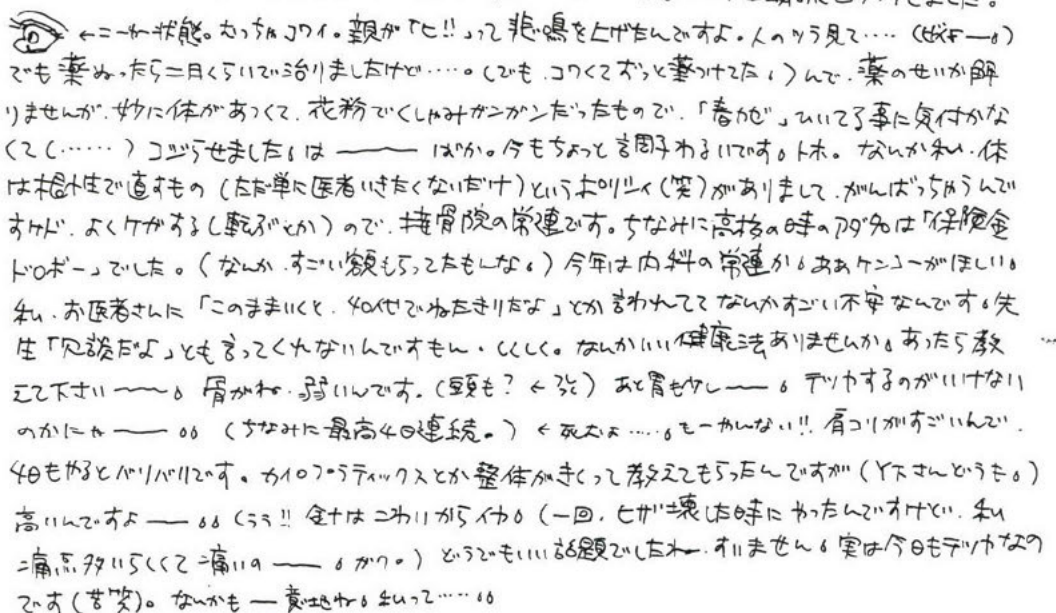 しました。
←こーゆー状態。むっちゃコワイ。親が「ヒ!!」って悲鳴を上げたんですよ。人のツラ見て‥‥(せおよ──。)
でも薬ぬったら二日くらいで治りましたけど‥‥。(でも、コワくてずっと薬つけてた。)んで、薬のせいか解
りませんが、妙に体があつくて、花粉でくしゃみガンガンだったもので、「春かぜ」ひいてる事に気付かな
くて(‥‥‥)コジらせました。は───ばか。今もちょっと調子わるいです。トホ。なんか私、体
は根性で直すもの(ただ単に医者いきたくないだけ)というポリシィ(笑)がありまして、がんばっちゃうんで
すケド、よくケガする(転ぶとか)ので、接骨院の常連です。ちなみに高校の時のアダ名は「保険金
ドロボー」でした。(なんか、すごい額もらってたもんな。)今年は内科の常連か。ああケンコーがほしい。
私、お医者さんに「このままいくと、40代でねたきりだな」とか言われててなんかすごい不安なんです。先
生「冗談だよ」とも言ってくれないんですもん。しくしく。なんかいい健康法ありませんか。あったら教
えて下さい──。骨がね、弱いんです。(頭も?←)あと胃も少し──。テツカするのがいけない
のかにゃ──。。(ちなみに最高4日連続。)←死だよ‥‥。もーやんない!!肩コリがすごいんで、
4日もやるとバリバリです。カイロプラティックスとか整体がきくって教えてもらったんですが(Y下さんどうも。)
高いんですよ──。。(うう!!金十はこわいからイヤ。(一回、ヒザ壊した時にやったんですけどい、私
痛点多いらしくて痛いの──。がつ。)どうでもいい話題でしたねー、すいません。実は今日もテツカなの
です(苦笑)。なんかも一意地ね。私って‥‥。。